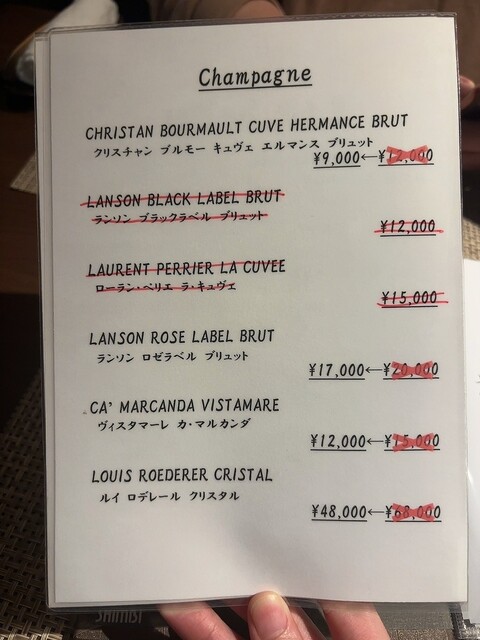 Champagne
CHRISTAN BOURMAULT CUVE HERMANCE BRUT
クリスチャン ブルモー キュヴェ エルマンス ブリュット
¥9,000←¥12,000
LANSON BLACK LABEL BRUT
ランソン ブラックラベル ブリュット
¥12,000
LAURENT PERRIER LA CUVEE
ローラン・ペリエ ラ・キュヴェ
¥15,000
LANSON ROSE LABEL BRUT
ランソン ロゼラベル ブリュット
¥17,000←¥20,000
CA' MARCANDA VISTAMARE
ヴィスタマーレ カ・マルカンダ
¥12,000←¥15,000
LOUIS ROEDERER CRISTAL
ルイ ロデレール クリスタル
¥48,000←¥68,000